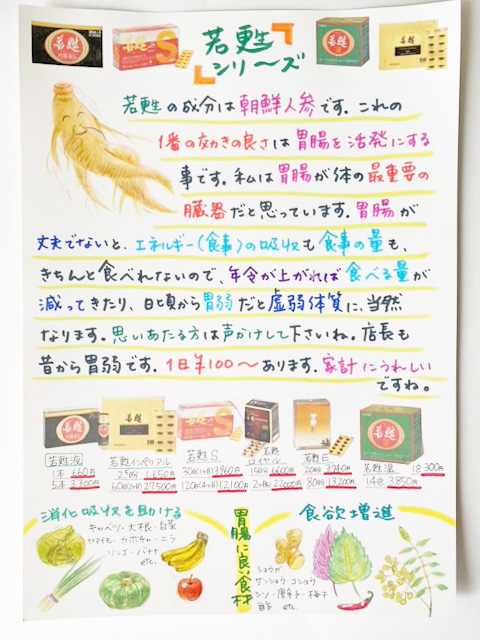 若甦
シリーズ
若甦の成分は朝鮮人参です。これの
1番の効きの良さは胃腸を活発にする
事です。私は胃腸が体の最重要の
臓器だと思っています。胃腸が
丈夫でないと、エネルギー(食事)の吸収も食事の量も、
きちんと食べれないので、年令が上がれば食べる量が
減ってきたり、日頃から胃弱だと虚弱体質に、当然
なります。思いあたる方は声かけして下さいね。店長も
昔から胃弱です。1日¥100〜あります。家計にうれしい
ですね。
若甦液
1本 660円
5本 3,300円
若甦インペリアル
60包(1ヶ月) 27,500円
若甦S
30日(1ヶ月) 3,960円
120日(4ヶ月) 12,100円
若甦
ロイヤル
15日分 6,600円
22,000円
若甦E
20日 3,740円
80日 13,200円
若甦温
1包 300円
14包 3,850円
消化吸収を助ける
キャベツ・大根・白菜
ヤマイモ・カボチャ・ニラ
リンゴ・バナナ
etc.
胃腸に良い食材
食欲増進
ショウガ
サンショウ・コショウ
シソ・唐辛子・梅干
酢 etc.